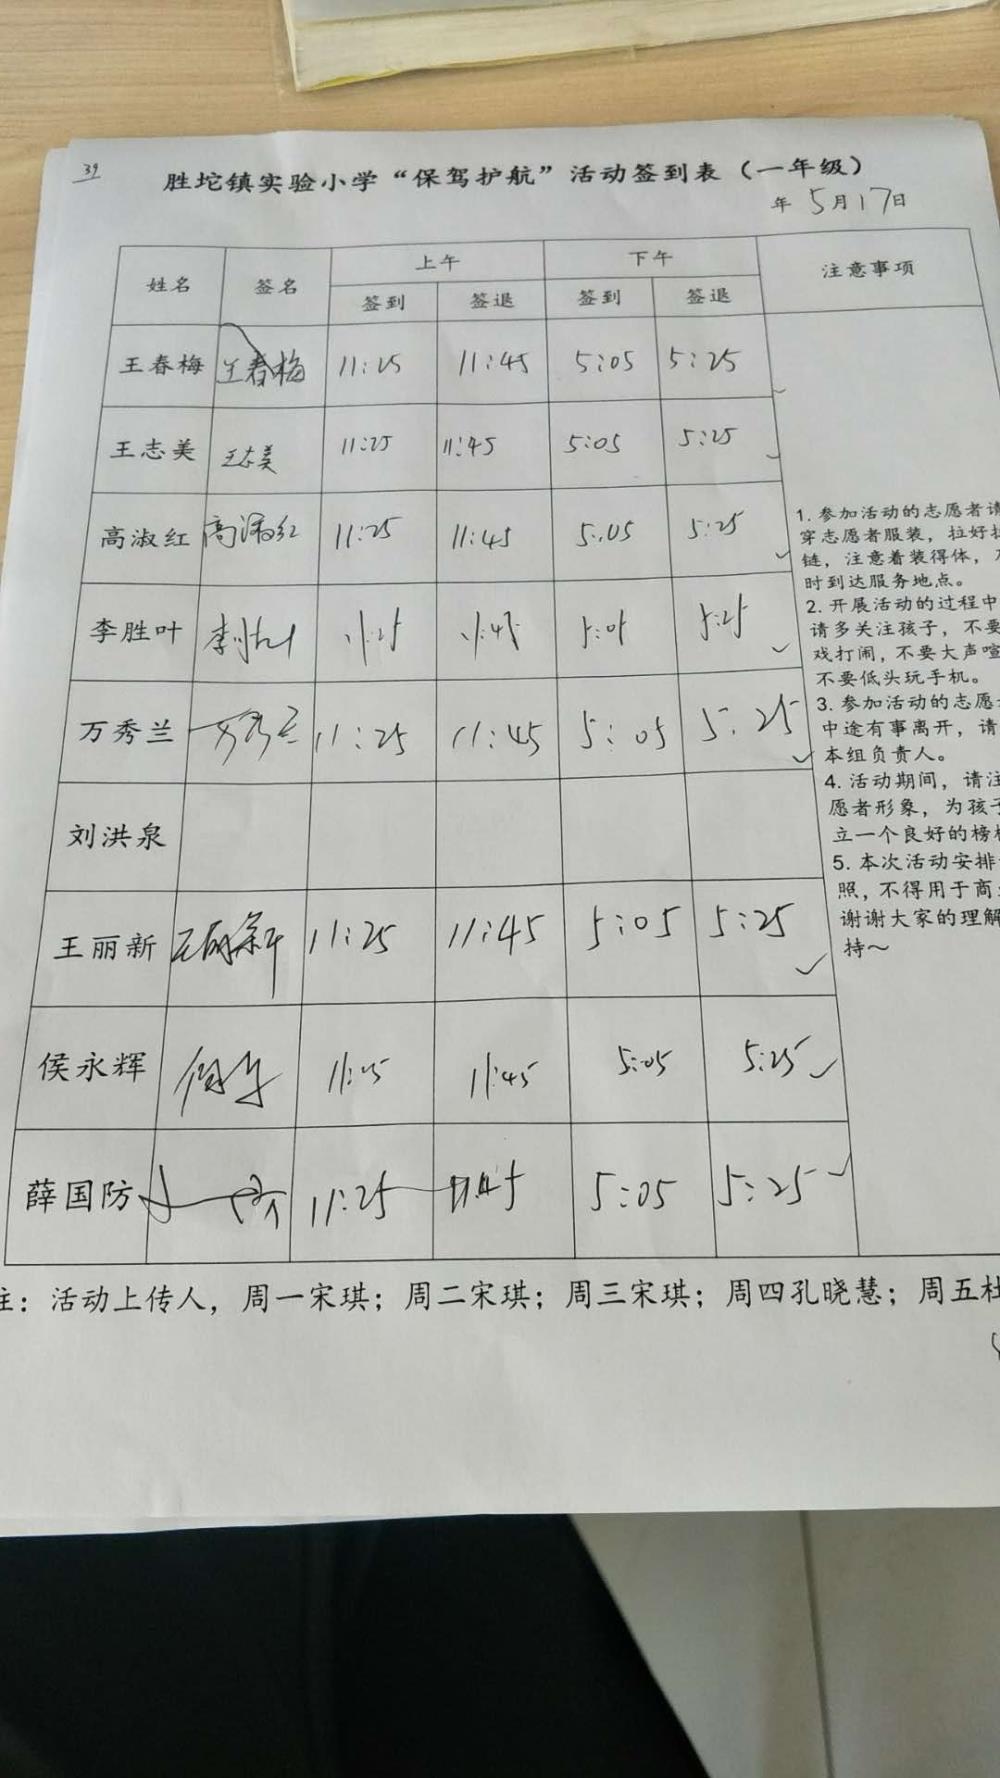 39
胜坨镇实验小学“保驾护航”活动签到表（一年级）
年 5月17日
姓名 签名 上午 下午 注意事项
签到 签退 签到 签退
王春梅 王春梅 11:25 11:45 5:05 5:25
王志美 王志美 11:25 11:45 5:05 5:25
高淑红 高淑红 11:25 11:45 5:05 5:25
李胜叶 11:25 11:45 5:05 5:25
万秀兰 万秀兰 11:25 11:45 5:05 5:25
刘洪泉
王丽新 王丽新 11:25 11:45 5:05 5:25
侯永辉 11:25 11:45 5:05 5:25
薛国防 11:25 11:45 5:05 5:25
1. 参加活动的志愿者请
穿志愿者服装，拉好拉
链，注意着装得体，
时到达服务地点。
2. 开展活动的过程中
请多关注孩子，不要
戏打闹，不要大声喧
不要低头玩手机。
3. 参加活动的志愿
中途有事离开，请
本组负责人。
4. 活动期间，请注
愿者形象，为孩子
立一个良好的榜
5. 本次活动安排
照，不得用于商
谢谢大家的理解
持～
注：活动上传人，周一宋琪；周二宋琪；周三宋琪；周四孔晓慧；周五杜